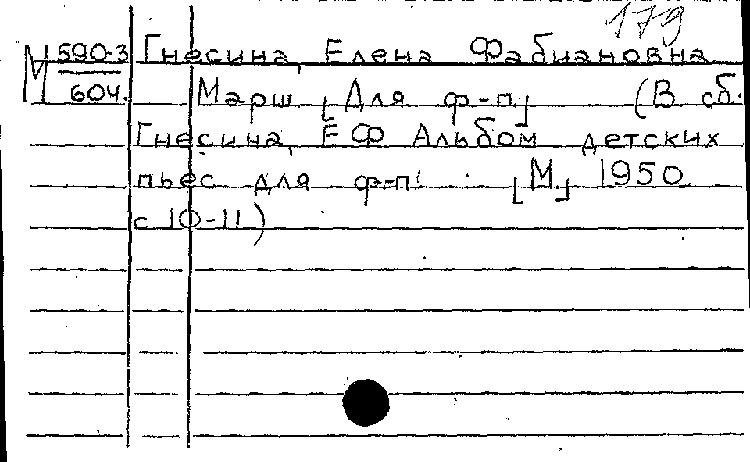 179
М 590-3 Гнесина, Елена Фабиановна
604. Марш [Для ф-п] (В сб.
Гнесина, ЕФ Альбом детских
пьес для ф-п. [М] 1950
с 10-11)